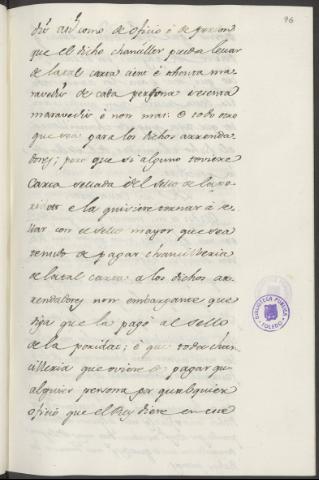 96
diz así como de oficio é de
que el dicho chanciller pueda levar
de la tal carta cient é ochenta ma-
ravedis, de cada persona sesenta
maravedis é non mas: é todo otro
que sea para los dichos arrenda-
dores; pero que si alguno toviere
Carta sellada del sello de la po-
ridat e la quisiere tornar á se-
llar con el sello mayor que sea
tenudo de pagar chancilleria
de la tal carta a los dichos ar-
rendadores non embargante que
diga que la pagó al sello
de la poridat; é que toda chan-
cilleria que oviere de pagar qu-
alquier persona por qualquier
oficio que el Rey diere en
BIBLIOTECA PÚBLICA
TOLEDO